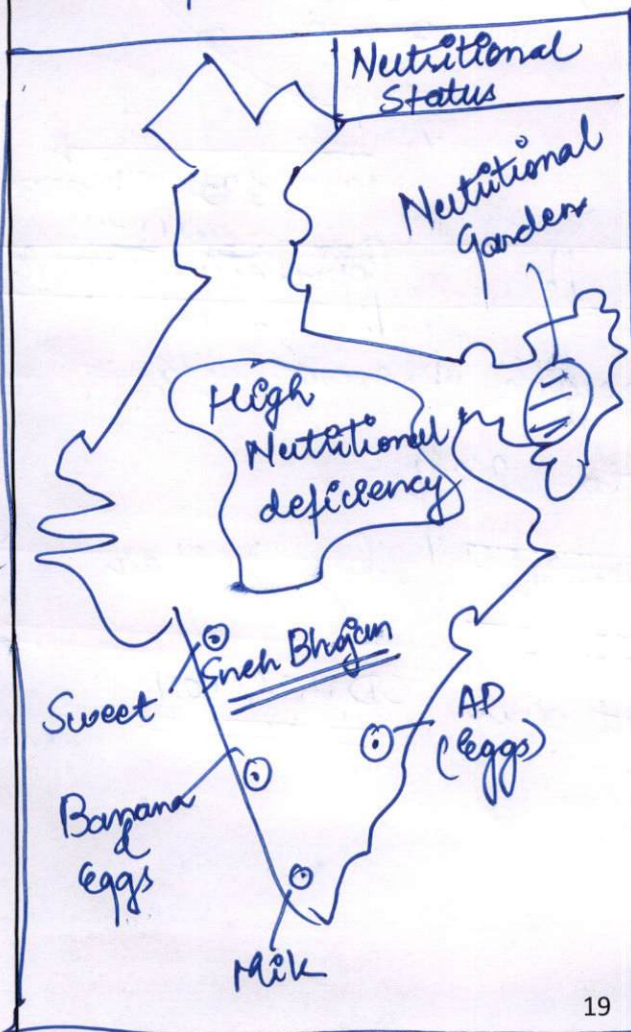 Nutritional
Status
Nutritional
Garden
High
Nutritional
deficiency
Sneh Bhojan
Sweet
AP
(eggs)
Banana
&
eggs
Milk
19